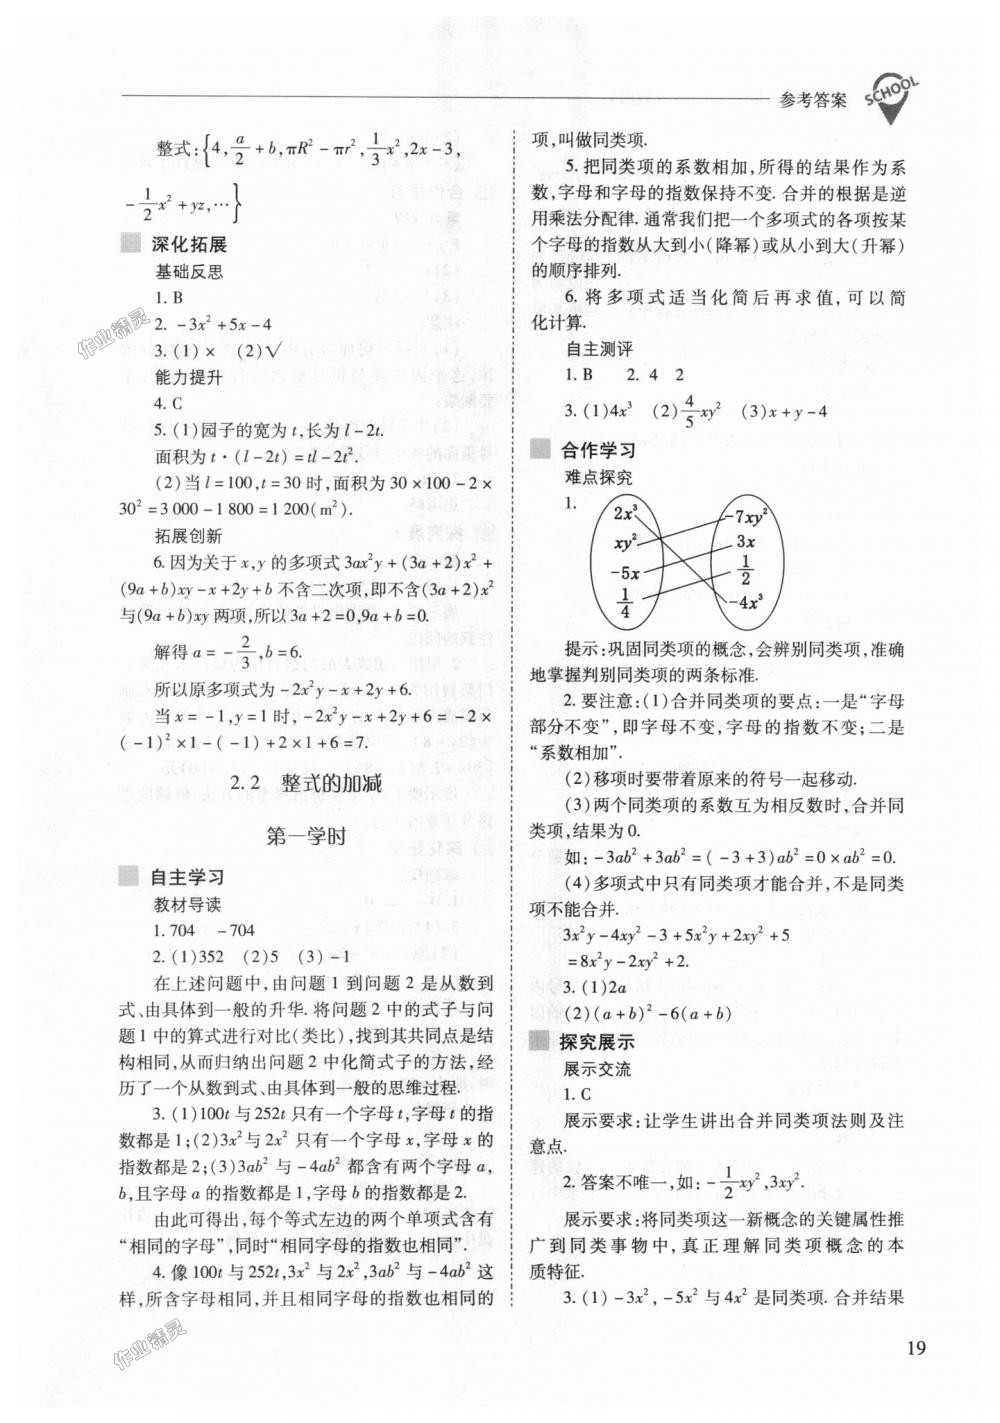 参考答案
SCHOOL
整式:{4, a/2+b, πR²-πr², 1/3x², 2x-3,
-1/2x²+yz,…}
深化拓展
基础反思
1. B
2. -3x²+5x-4
3. (1)× (2)√
能力提升
4. C
5. (1)园子的宽为 t,长为 l-2t.
面积为 t·(l-2t)=tl-2t².
(2)当 l=100,t=30 时,面积为 30×100-2×
30²=3 000-1 800=1 200(m²).
拓展创新
6. 因为关于 x,y 的多项式 3ax²y+(3a+2)x²+
(9a+b)xy-x+2y+b 不含二次项,即不含(3a+2)x²
与(9a+b)xy 两项,所以 3a+2=0,9a+b=0.
解得 a=-2/3,b=6.
所以原多项式为-2x²y-x+2y+6.
当 x=-1,y=1 时,-2x²y-x+2y+6=-2×
(-1)²×1-(-1)+2×1+6=7.
2.2 整式的加减
第一学时
自主学习
教材导读
1. 704 -704
2. (1)352 (2)5 (3)-1
在上述问题中,由问题 1 到问题 2 是从数到
式、由具体到一般的升华. 将问题 2 中的式子与问
题 1 中的算式进行对比(类比),找到其共同点是结
构相同,从而归纳出问题 2 中化简式子的方法,经
历了一个从数到式、由具体到一般的思维过程.
3. (1)100t 与 252t 只有一个字母 t,字母 t 的指
数都是 1;(2)3x²与 2x² 只有一个字母 x,字母 x 的
指数都是 2;(3)3ab² 与 -4ab² 都含有两个字母 a,
b,且字母 a 的指数都是 1,字母 b 的指数都是 2.
由此可得出,每个等式左边的两个单项式含有
“相同的字母”,同时“相同字母的指数也相同”.
4. 像 100t 与 252t,3x² 与 2x²,3ab² 与 -4ab² 这
样,所含字母相同,并且相同字母的指数也相同的
项,叫做同类项.
5. 把同类项的系数相加,所得的结果作为系
数,字母和字母的指数保持不变. 合并的根据是逆
用乘法分配律. 通常我们把一个多项式的各项按某
个字母的指数从大到小(降幂)或从小到大(升幂)
的顺序排列.
6. 将多项式适当化简后再求值,可以简
化计算.
自主测评
1. B 2. 4 2
3. (1)4x³ (2)4/5xy² (3)x+y-4
合作学习
难点探究
1.
2x³ -7xy²
xy² 3x
-5x 1/2
1/4 -4x³
提示:巩固同类项的概念,会辨别同类项,准确
地掌握判别同类项的两条标准.
2. 要注意:(1)合并同类项的要点:一是“字母
部分不变”,即字母不变,字母的指数不变;二是
“系数相加”.
(2)移项时要带着原来的符号一起移动.
(3)两个同类项的系数互为相反数时,合并同
类项,结果为 0.
如:-3ab²+3ab²=(-3+3)ab²=0×ab²=0.
(4)多项式中只有同类项才能合并,不是同类
项不能合并.
3x²y-4xy²-3+5x²y+2xy²+5
=8x²y-2xy²+2.
3. (1)2a
(2)(a+b)²-6(a+b)
探究展示
展示交流
1. C
展示要求:让学生讲出合并同类项法则及注
意点.
2. 答案不唯一,如:-1/2xy²,3xy².
展示要求:将同类项这一新概念的关键属性推
广到同类事物中,真正理解同类项概念的本
质特征.
3. (1)-3x²,-5x² 与 4x² 是同类项. 合并结果
19
作业精灵
作业精灵